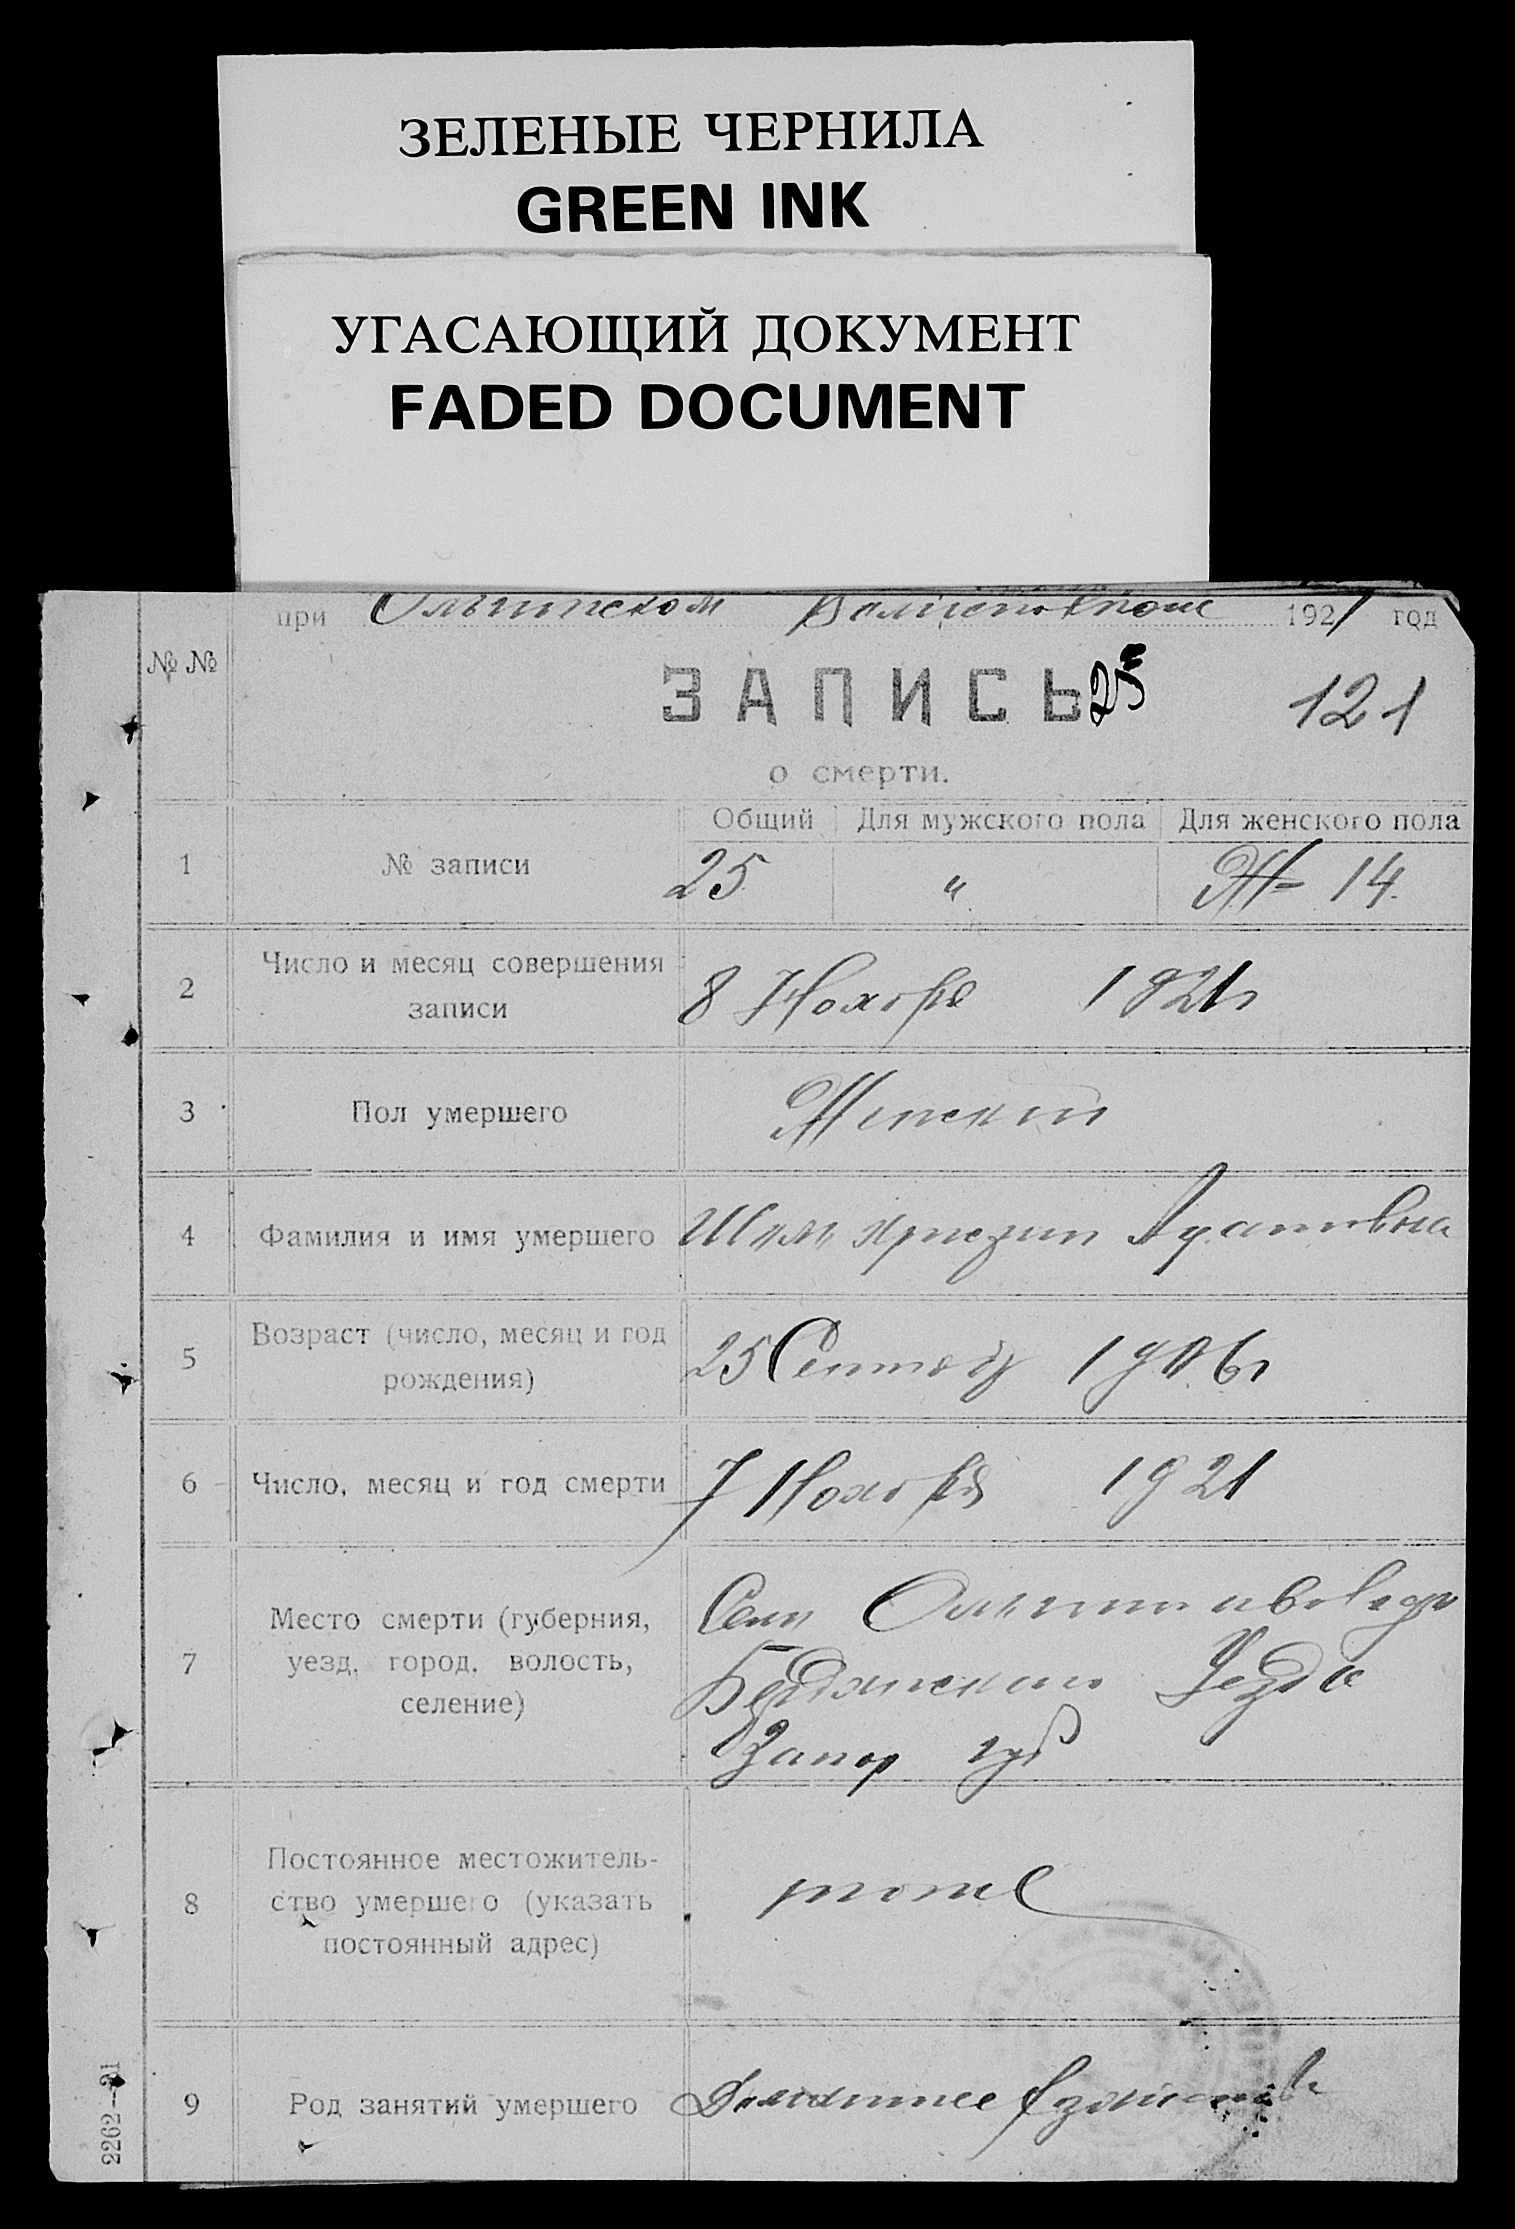 ЗЕЛЕНЫЕ ЧЕРНИЛА
GREEN INK
УГАСАЮЩИЙ ДОКУМЕНТ
FADED DOCUMENT
при Ольгинском 1921 год
№ №
ЗАПИСЬ 25
121
о смерти.
Общий Для мужского пола Для женского пола
1 № записи 25 " Ж 14.
2 Число и месяц совершения записи 8 Ноября 1921 г
3 Пол умершего Женский
4 Фамилия и имя умершего
5 Возраст (число, месяц и год рождения) 25 1906 г
6 Число, месяц и год смерти 7 Ноября 1921
7 Место смерти (губерния, уезд, город, волость, селение) Село
Бердянского Уезда
Запор губ
8 Постоянное местожительство умершего (указать постоянный адрес) тоже
9 Род занятий умершего Домашнее
2262—21